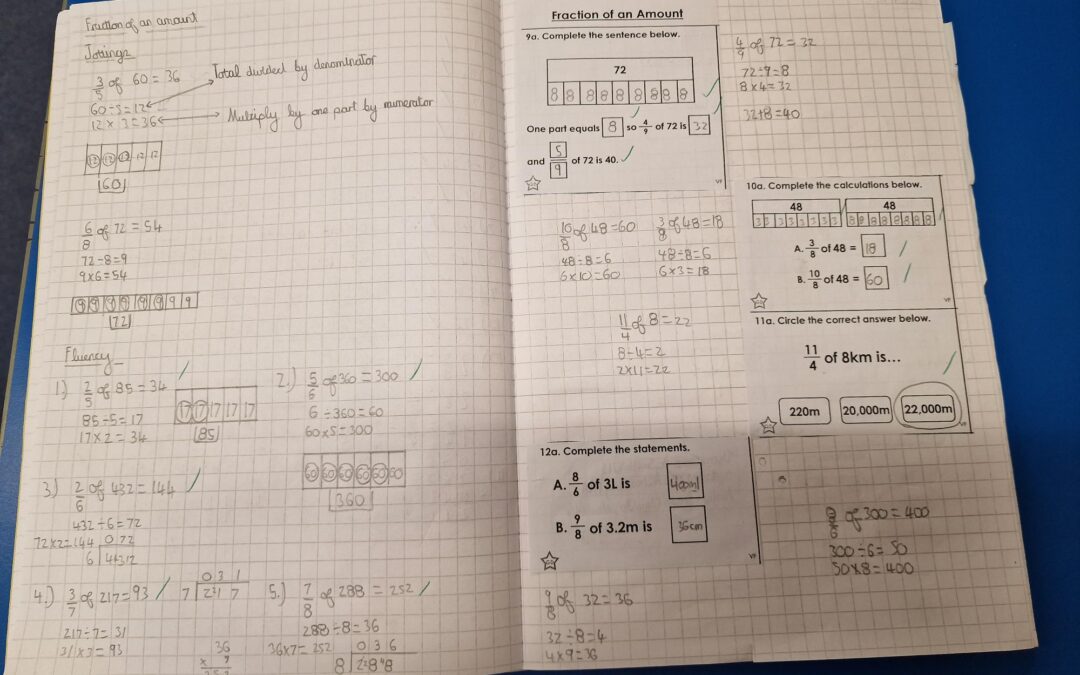 Fraction of an amount
Jottings
3/5 of 60 = 36
Total divided by denominator
60÷5=12
12 × 3=36
Multiply by one part by numerator
12 12 12 12 12
60
6/8 of 72 = 54
72÷8=9
9×6=54
9 9 9 9 9 9 9 9
72
Fluency
1) 2/5 of 85 = 34
85÷5=17
17×2=34
17 17 17 17 17
85
2.) 5/6 of 360 = 300
6÷360=60
60×5=300
60 60 60 60 60 60
360
3.) 2/6 of 432 = 144
432÷6=72
72×2=144
072
6
4.) 3/7 of 217=93
217÷7=31
31×3=93
031
7
5.) 7/8 of 288 = 252
288÷8=36
36×7=252
036
8
36
Fraction of an Amount
9a. Complete the sentence below.
72
8 8 8 8 8 8 8 8 8
One part equals 8 so 4/9 of 72 is 32
and 5/9 of 72 is 40.
VF
4/9 of 72 = 32
72÷9=8
8×4=32
32+8=40
10/8 of 48=60
48÷8=6
6×10=60
3/8 of 48=18
48÷8=6
6×3=18
10a. Complete the calculations below.
48 48
A. 3/8 of 48 = 18
B. 10/8 of 48 = 60
VF
11/4 of 8=22
8÷4=2
2×11=22
11a. Circle the correct answer below.
11/4 of 8km is...
220m 20,000m 22,000m
12a. Complete the statements.
A. 8/6 of 3L is 400ml
B. 9/8 of 3.2m is 36cm
VF
of 300=400
300÷6=50
50×8=400
9/8 of 32=36
32÷8=4
4×9=36